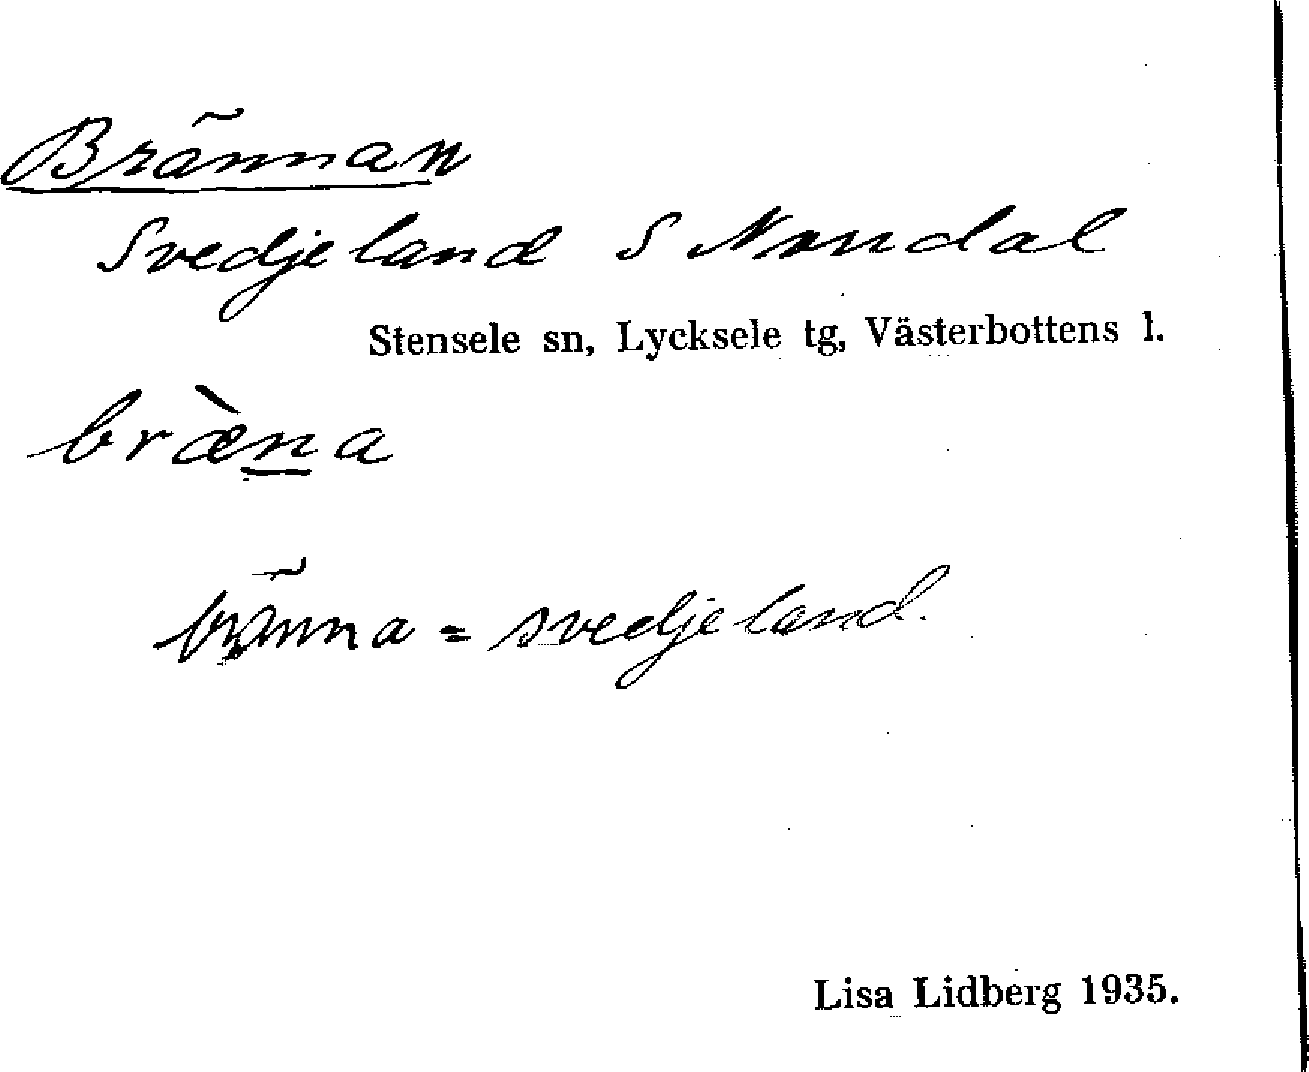 Brännan
Svedjeland S
Stensele sn, Lycksele tg, Västerbottens l.
bræ̀n̲a
bränna = svedjeland.
Lisa Lidberg 1935.